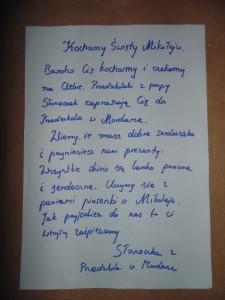 Kochany Święty Mikołaju.
Bardzo Cię kochamy i czekamy
na Ciebie. Przedszkolaki z grupy
Słoneczek zapraszają Cię do
Przedszkola w Mordarce.
Wiemy, że masz dobre serduszko
i przyniesiesz nam prezenty.
Wszystkie dzieci są bardzo
i serdeczne. Uczymy się z
paniami piosenki o Mikołaju.
Jak przyjedziesz do nas to ci
zaśpiewamy
Słoneczka z
Przedszkola w Mordarce